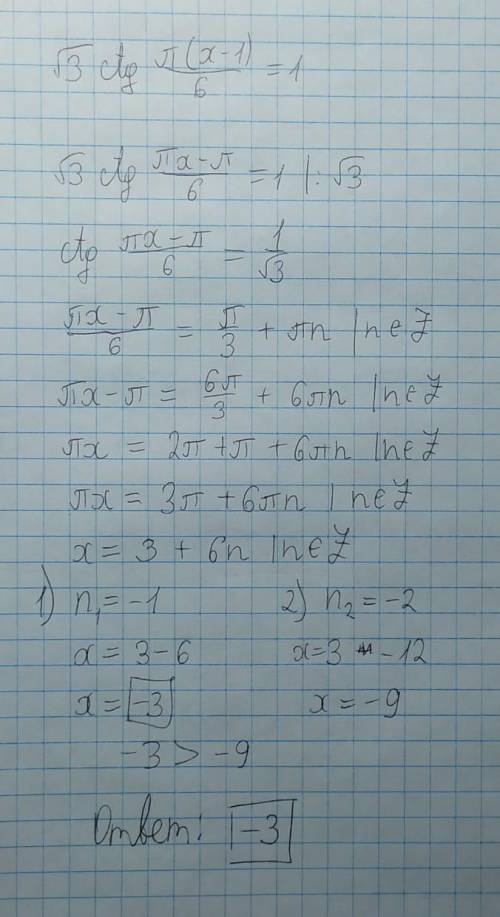 √3 ctg π(x-1)/6 = 1
√3 ctg πx-π/6 = 1 |:√3
ctg πx-π/6 = 1/√3
πx-π/6 = π/3 + πn | n∈Z
πx-π = 6π/3 + 6πn | n∈Z
πx = 2π+π + 6πn | n∈Z
πx = 3π + 6πn | n∈Z
x = 3 + 6n | n∈Z
1) n₁ = -1 2) n₂ = -2
x = 3-6 x=3 -12
x = -3 x = -9
-3 > -9
Ответ: -3